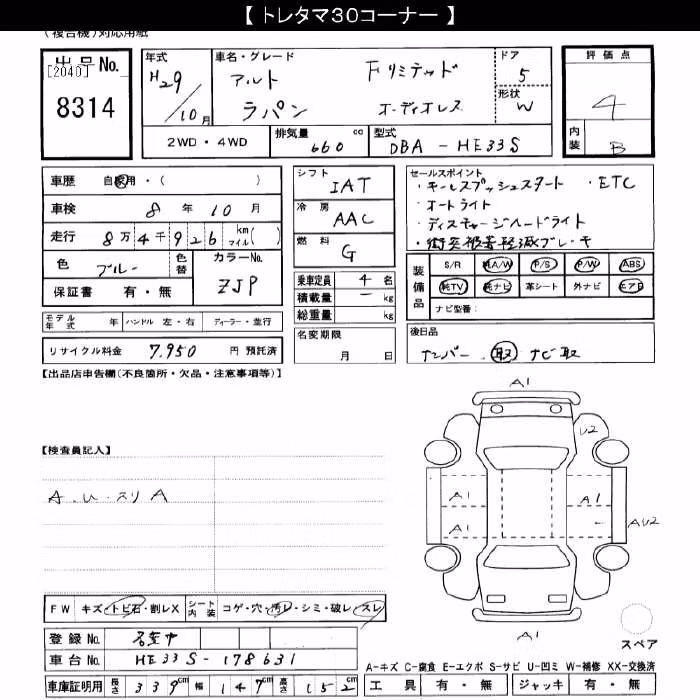 【 トレタマ30コーナー 】
(複合機)対応用紙
出品No. [2040] 8314
年式 H29/10月
車名・グレード アルト ラパン Fリミテッド オーディオレス
ドア 5
形状 W
評価点 4
内装 B
2WD・4WD
排気量 660 cc
型式 DBA-HE33S
車歴 自家用・( )
車検 8年 10月
走行 8万4千926 km マイル( )
色 ブルー 色替
カラーNo. ZJP
保証書 有・無
シフト IAT
冷房 AAC
燃料 G
乗車定員 4名
積載量 ー kg
総重量 kg
セールスポイント
・キーレスプッシュスタート ・ETC
・オートライト
・ディスチャージヘッドライト
・衝突被害軽減ブレーキ
装備品 S/R 純A/W P/S P/W ABS
純TV 純ナビ 革シート 外ナビ エアB
ナビ型番:
モデル年式 年 ハンドル 左・右 ディーラー・並行
リサイクル料金 7,950 円 預託済
名変期限 月 日
後日品
ナンバー 取 ナビ取
【出品店申告欄(不良箇所・欠品・注意事項等)】
【検査員記入】
A・U・スリA
A1
U2
A1
A1
A1
AU2
A1
スペア
FW キズ・トビ石・割レX シート内装 コゲ・穴・汚レ・シミ・破レ・スレ
登録No. 名変中
車台No. HE33S-178631
車庫証明用 長さ 339cm 幅 147cm 高さ 152cm
A-キズ C-腐食 E-エクボ S-サビ U-凹ミ W-補修 XX-交換済
工具 有・無 ジャッキ 有・無